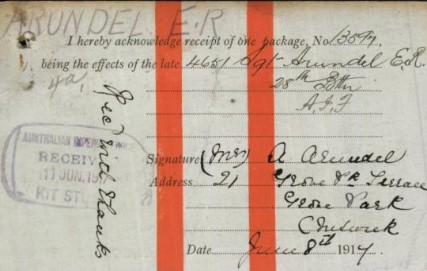 ARUNDEL E.R
I hereby acknowledge receipt of one package, No 13599
being the effects of the late 4651 Sgt Arundel E.R.
28th Bttn
A.I.F
Rec'd with thanks
AUSTRALIAN IMPERIAL
RECEIV
11 JUN. 19
KIT ST
Signature (Mrs) A Arundel
Address 21 Grove Pk Terrace
Grove Park
Chiswick
Date June 8th 1917.